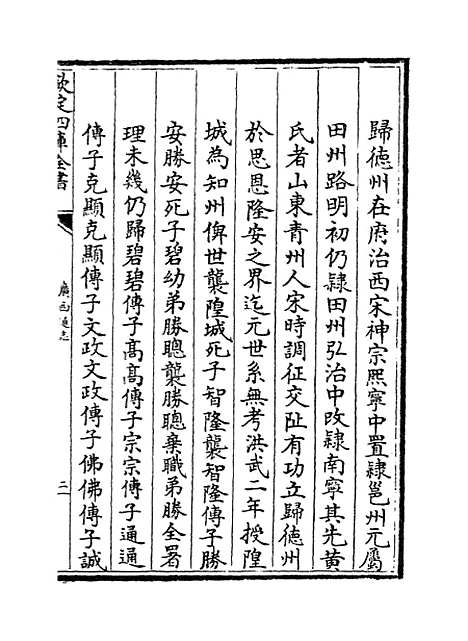 歸德州在府治西宋神宗熙寧中置隸邕州元屬
田州路明初仍隸田州弘治中改隸南寧其先黄
氏者山東青州人宋時調征交阯有功立歸德州
於思恩隆安之界迄元世系無考洪武二年授隍
城為知州俾世襲隍城死子智隆襲智隆傳子勝
安勝安死子碧幼弟勝聰襲勝聰棄職弟勝全署
理未幾仍歸碧碧傳子髙髙傳子宗宗傳子通通
傳子克顯克顯傳子文政文政傳子佛佛傳子誠
欽定四庫全書
廣西通志
二